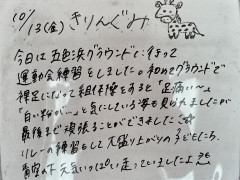 10/13(金) きりんぐみ
今日は五色浜グラウンドに行って
運動会練習をしました。初めてグラウンドで
裸足になって組体操をすると「足痛い～」
「白い粉が…」と気にしている姿も見られましたが
最後まで頑張ることができました☆
リレーの練習もして大盛り上がりの子どもたち。
青空の下元気いっぱい走っていましたよ